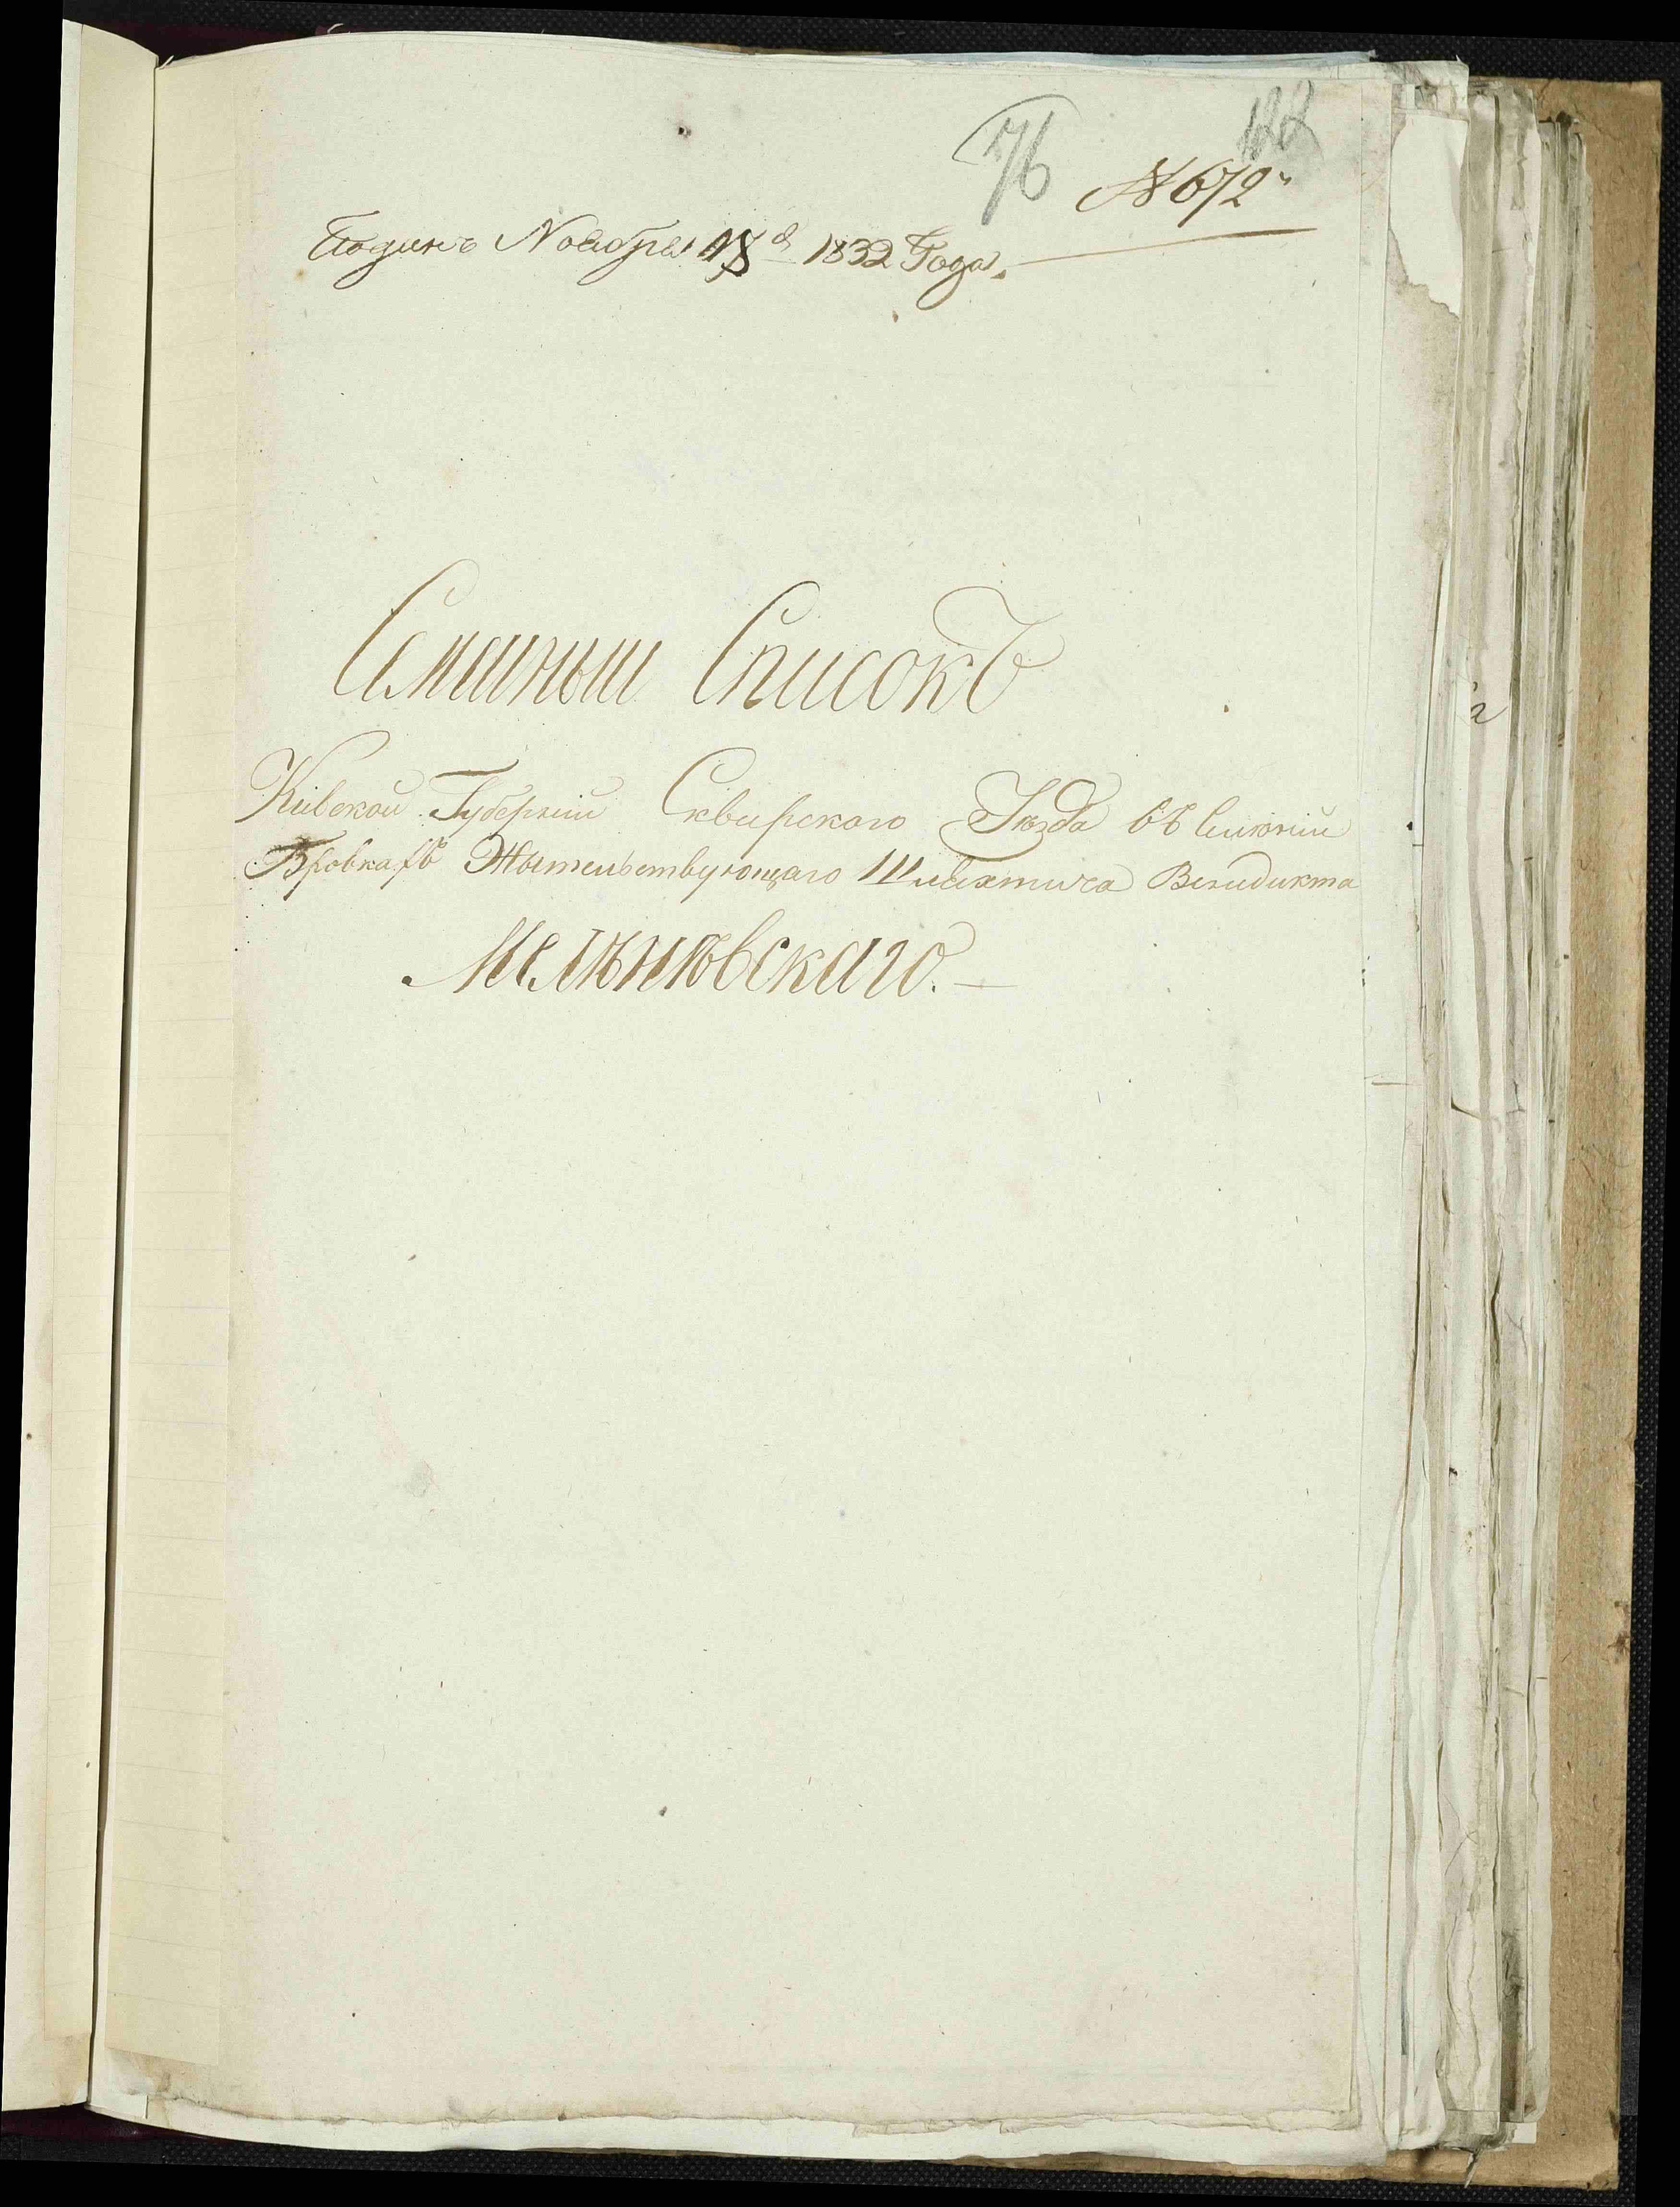 76
122
№ 672
Поданъ Ноября 18 д 1832 Года.
Семейный Списокъ
Кивской Губерніи Сквирского Уѣзда въ Селеніи
Бровкахъ Жытельствующаго Шляхтича Венидикта
Мельнѣвскаго. —